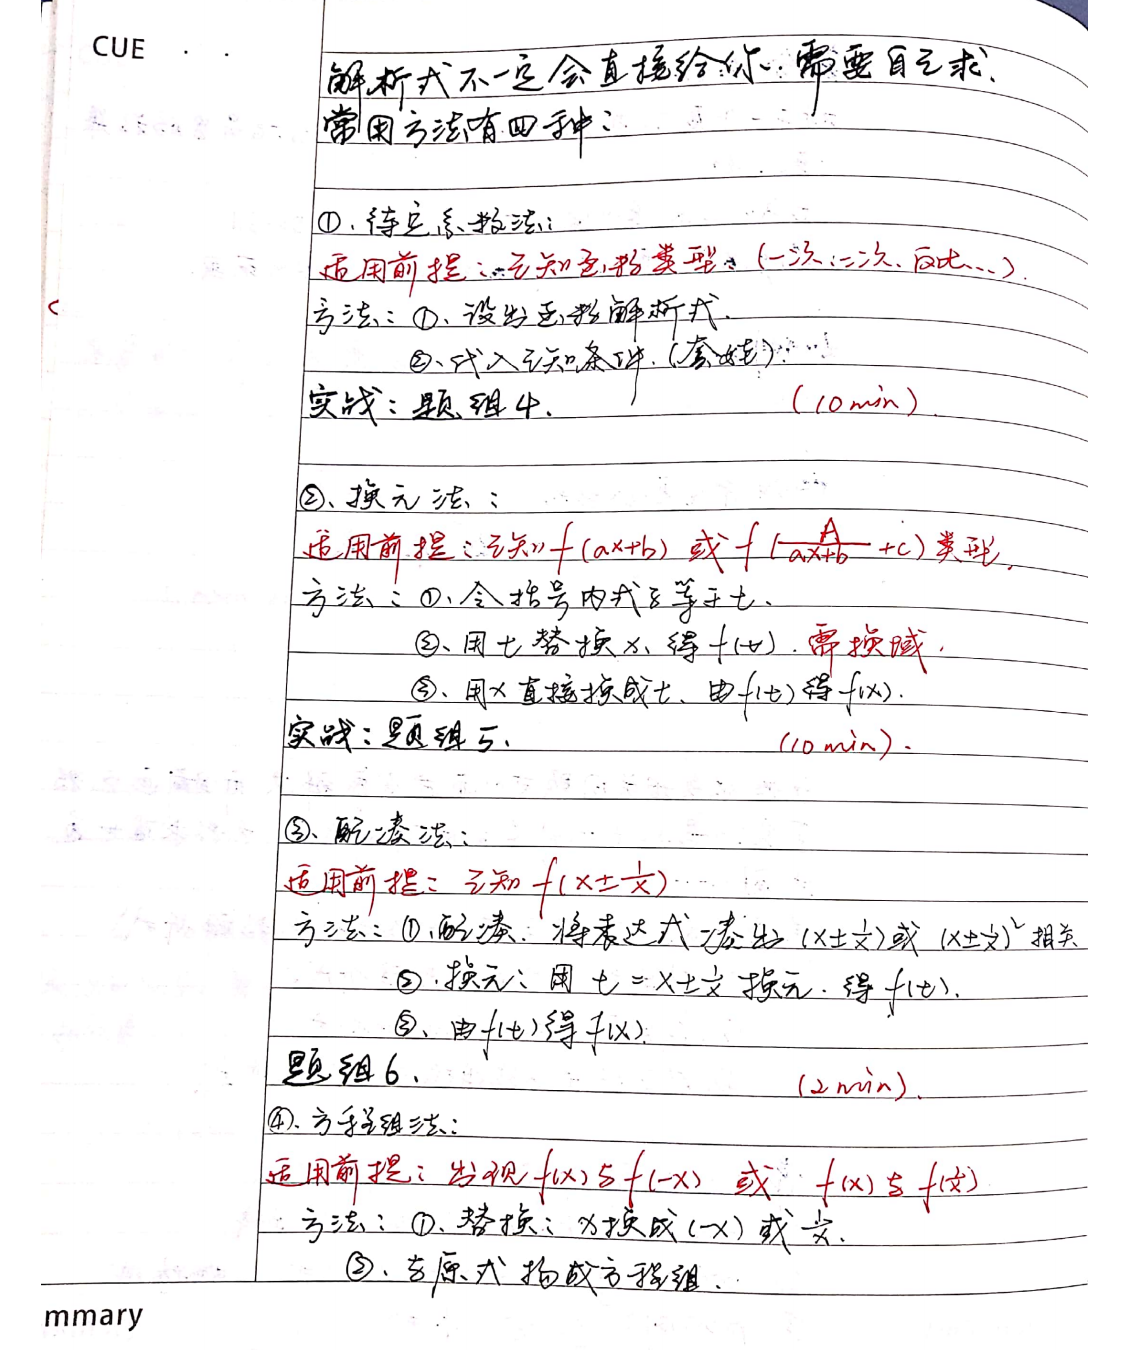 CUE
解析式不一定会直接给你. 需要自己求.
常用方法有四种:
①. 待定系数法:
适用前提: 已知函数类型. (一次. 二次. 反比...).
方法: ①. 设出函数解析式.
②. 代入已知条件. (套娃).
实战: 题组4. (10min).
②. 换元法:
适用前提: 已知 f(ax+b) 或 f(A/(ax+b) +c) 类型.
方法: ①. 令括号内式子等于t.
②. 用t替换x, 得f(t). 需换域.
③. 用x直接换成t. 由f(t)得f(x).
实战: 题组5. (10min).
③. 配凑法:
适用前提: 已知 f(x±1/x)
方法: ①. 配凑. 将表达式凑出 (x±1/x)或 (x±1/x)² 相关
②. 换元: 用 t=x±1/x 换元. 得f(t).
③. 由f(t)得f(x).
题组6. (2min).
④. 方程组法:
适用前提: 出现f(x)与f(-x) 或 f(x)与f(1/x)
方法: ①. 替换: x换成(-x)或1/x.
②. 与原式构成方程组.
mmary